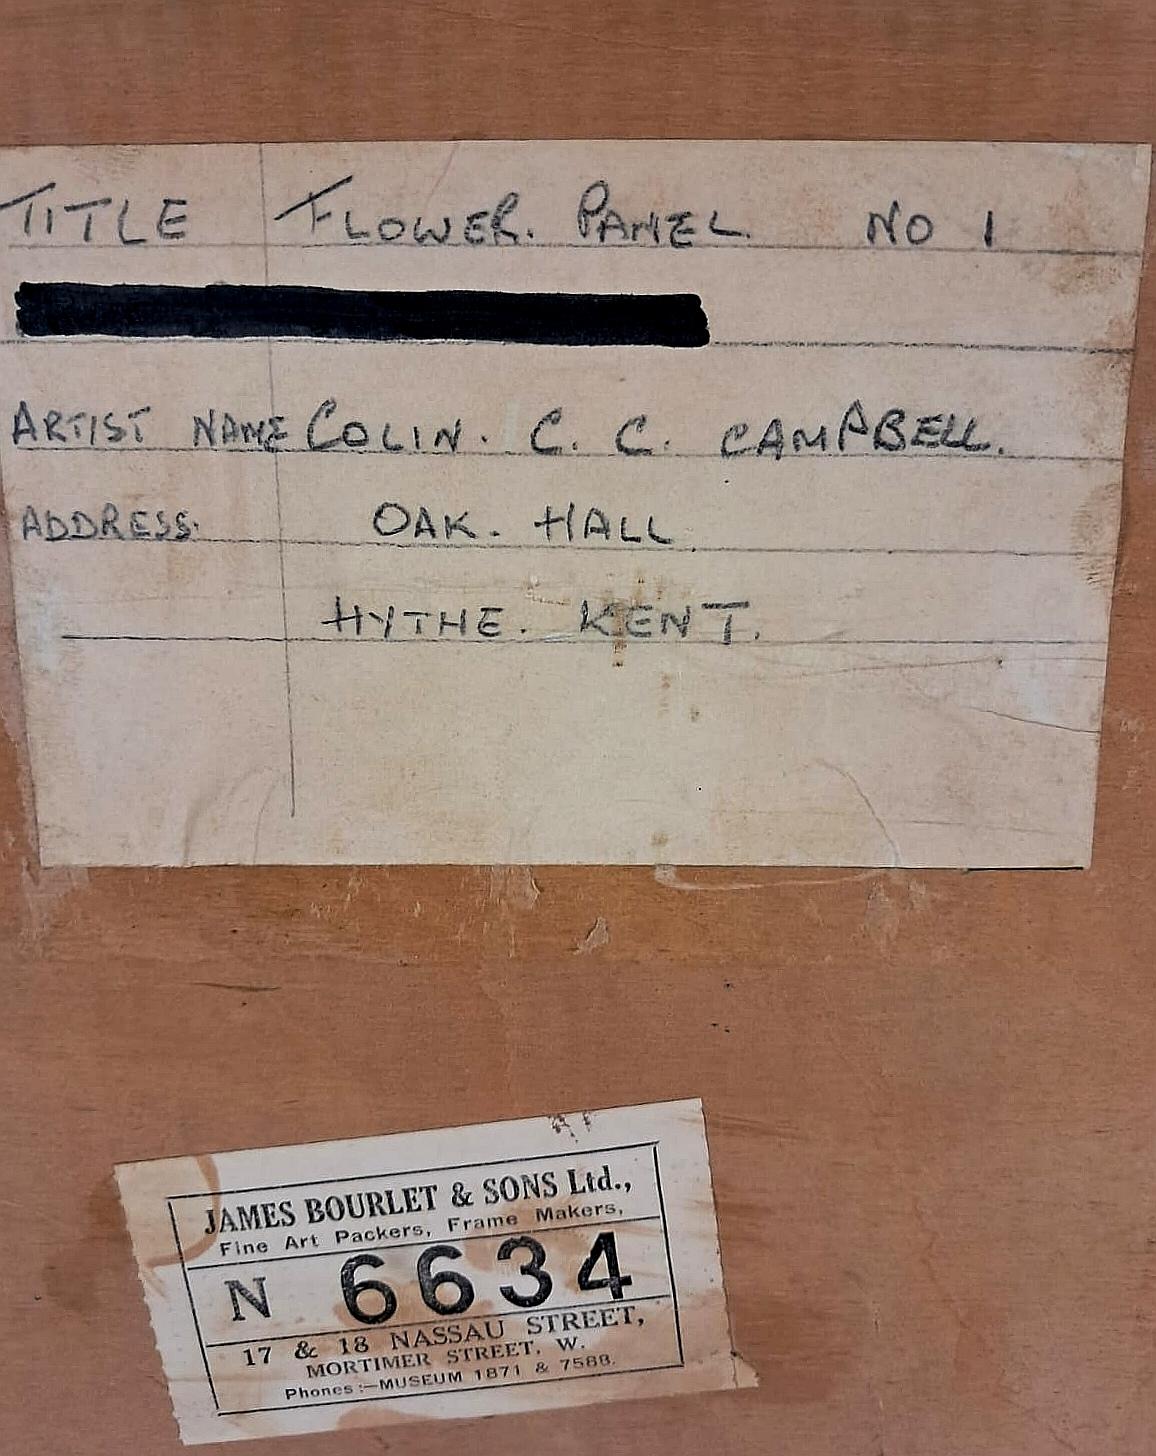 TITLE FLOWER. PANEL. NO 1
ARTIST NAME COLIN. C. C. CAMPBELL.
ADDRESS. OAK. HALL
HYTHE. KENT.
JAMES BOURLET & SONS Ltd.,
Fine Art Packers, Frame Makers,
N 6634
17 & 18 NASSAU STREET,
MORTIMER STREET, W.
Phones:—MUSEUM 1871 & 7588.